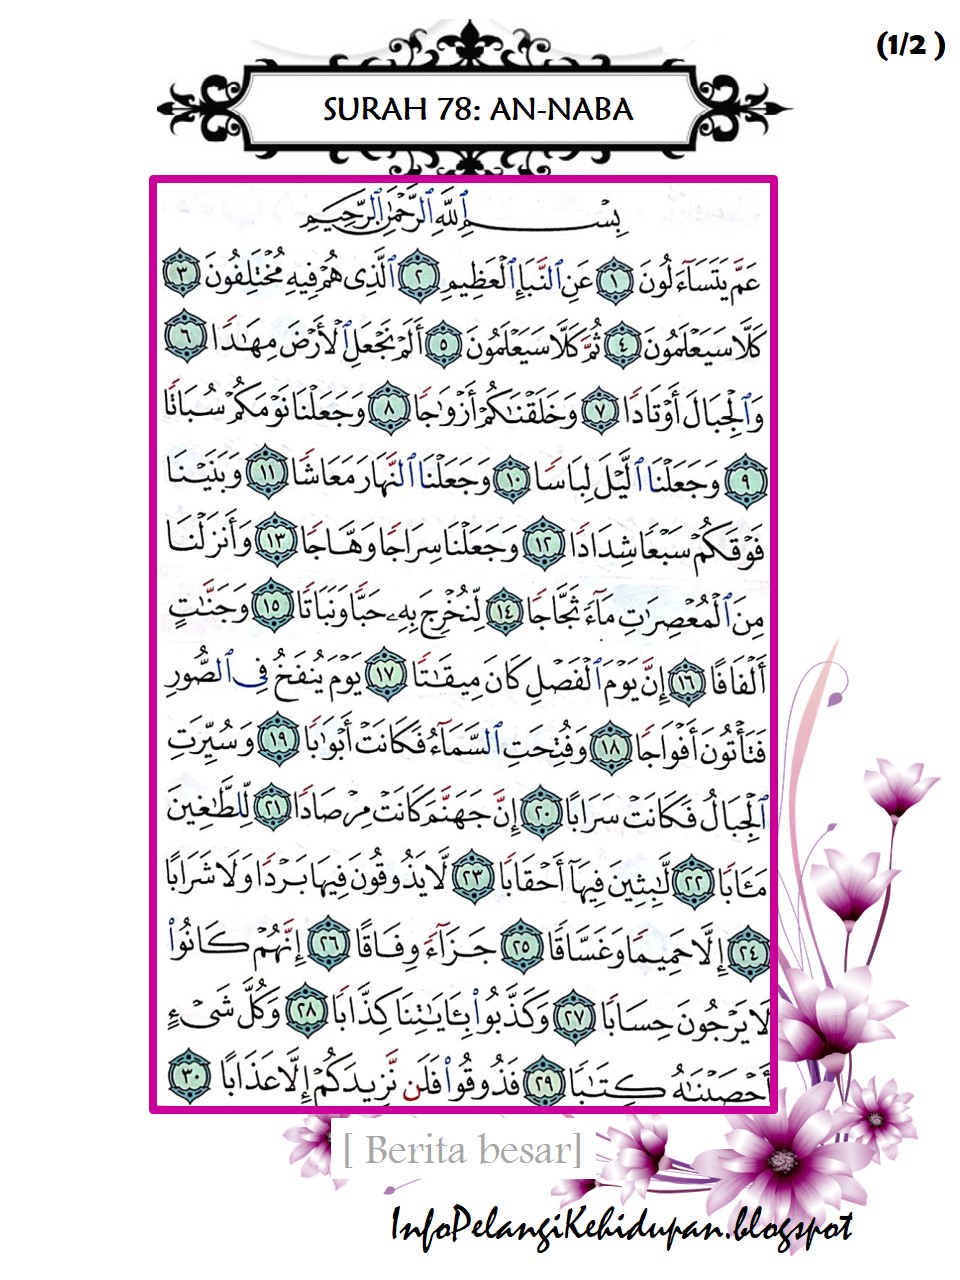 (1/2 )
SURAH 78: AN-NABA
بِسْمِ ٱللَّهِ ٱلرَّحْمَٰنِ ٱلرَّحِيمِ
عَمَّ يَتَسَآءَلُونَ ١ عَنِ ٱلنَّبَإِ ٱلْعَظِيمِ ٢ ٱلَّذِى هُمْ فِيهِ مُخْتَلِفُونَ ٣
كَلَّا سَيَعْلَمُونَ ٤ ثُمَّ كَلَّا سَيَعْلَمُونَ ٥ أَلَمْ نَجْعَلِ ٱلْأَرْضَ مِهَٰدًا ٦
وَٱلْجِبَالَ أَوْتَادًا ٧ وَخَلَقْنَٰكُمْ أَزْوَٰجًا ٨ وَجَعَلْنَا نَوْمَكُمْ سُبَاتًا
٩ وَجَعَلْنَا ٱلَّيْلَ لِبَاسًا ١٠ وَجَعَلْنَا ٱلنَّهَارَ مَعَاشًا ١١ وَبَنَيْنَا
فَوْقَكُمْ سَبْعًا شِدَادًا ١٢ وَجَعَلْنَا سِرَاجًا وَهَّاجًا ١٣ وَأَنزَلْنَا
مِنَ ٱلْمُعْصِرَٰتِ مَآءً ثَجَّاجًا ١٤ لِّنُخْرِجَ بِهِۦ حَبًّا وَنَبَاتًا ١٥ وَجَنَّٰتٍ
أَلْفَافًا ١٦ إِنَّ يَوْمَ ٱلْفَصْلِ كَانَ مِيقَٰتًا ١٧ يَوْمَ يُنفَخُ فِى ٱلصُّورِ
فَتَأْتُونَ أَفْوَاجًا ١٨ وَفُتِحَتِ ٱلسَّمَآءُ فَكَانَتْ أَبْوَٰبًا ١٩ وَسُيِّرَتِ
ٱلْجِبَالُ فَكَانَتْ سَرَابًا ٢٠ إِنَّ جَهَنَّمَ كَانَتْ مِرْصَادًا ٢١ لِّلطَّٰغِينَ
مَـَٔابًا ٢٢ لَّٰبِثِينَ فِيهَآ أَحْقَابًا ٢٣ لَّا يَذُوقُونَ فِيهَا بَرْدًا وَلَا شَرَابًا
٢٤ إِلَّا حَمِيمًا وَغَسَّاقًا ٢٥ جَزَآءً وِفَاقًا ٢٦ إِنَّهُمْ كَانُوا۟
لَا يَرْجُونَ حِسَابًا ٢٧ وَكَذَّبُوا۟ بِـَٔايَٰتِنَا كِذَّابًا ٢٨ وَكُلَّ شَىْءٍ
أَحْصَيْنَٰهُ كِتَٰبًا ٢٩ فَذُوقُوا۟ فَلَن نَّزِيدَكُمْ إِلَّا عَذَابًا ٣٠
[ Berita besar]
InfoPelangiKehidupan.blogspot